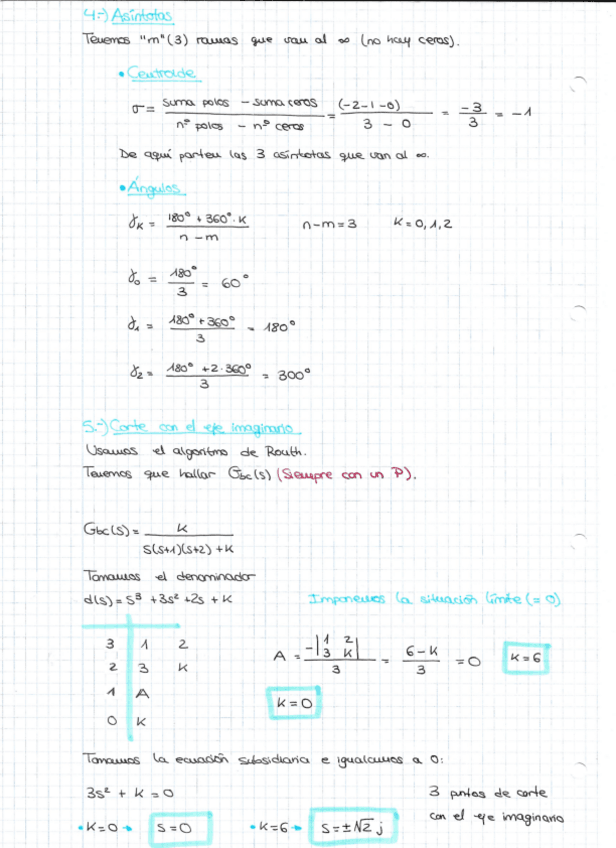 4.-) Asíntotas
Tenemos "m" (3) ramas que van al ∞ (no hay ceros).
• Centroide
σ = (suma polos - suma ceros)/(nº polos - nº ceros) = (-2-1-0)/(3 - 0) = -3/3 = -1
De aquí parten las 3 asíntotas que van al ∞.
• Ángulos
γK = (180° + 360°·K)/(n - m)   n-m=3   K=0,1,2
γ0 = 180°/3 = 60°
γ1 = (180° + 360°)/3 = 180°
γ2 = (180° + 2·360°)/3 = 300°
5.-) Corte con el eje imaginario
Usamos el algoritmo de Routh.
Tenemos que hallar Gbc(s) (Siempre con un P).
Gbc(s) = K/(s(s+1)(s+2)+K)
Tomamos el denominador
d(s) = s³ + 3s² + 2s + K   Imponemos la situación límite (= 0)
3 | 1 2
2 | 3 K
1 | A
0 | K
A = -|1 2; 3 K|/3 = (6-K)/3 = 0   K=6
K=0
Tomamos la ecuación subsidiaria e igualamos a 0:
3s² + K = 0   3 puntos de corte
con el eje imaginario
• K=0 → s=0   • K=6 → s=±√2 j